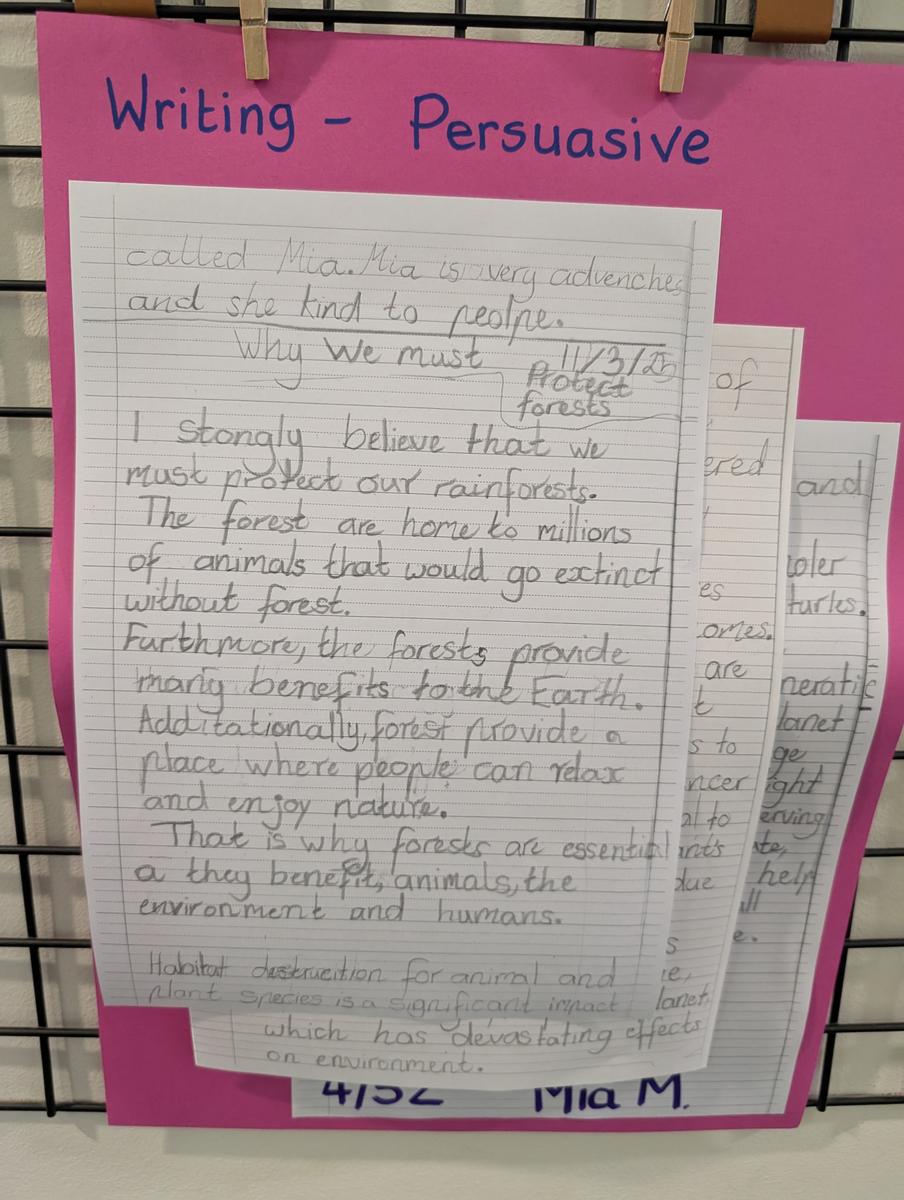 Writing - Persuasive
called Mia. Mia is very advenches
and she kind to peolpe.
Why We must
11/3/25
Protect
forests
I stongly believe that we
must protect our rainforests.
The forest are home to millions
of animals that would go extinct
without forest.
Furthmore, the forests provide
many benefits to the Earth.
Additationally, forest provide a
place where people can relax
and enjoy nature.
That is why forests are essential
a they benefit, animals, the
environment and humans.
Habitat destrucition for animal and
plant species is a significant impact
which has devastating effects
on environment.
of
ered
es
omes.
are
t
s to
ncer
al to
ants
due
s
ie,
lanet
and
oler
turles.
neratie
lanet
ge
ight
erving
te,
help
all
e.
Mia M.